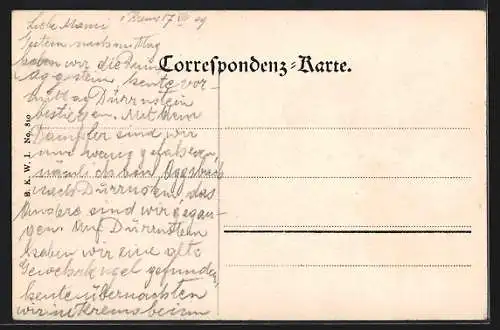 Liebe Mami! Krems 17/VIII 09
Gestern nachmittag
haben wir die Ruine
Aggstein heute vor-
mittag Dürrnstein
bestiegen. Mit dem
Dampfer sind wir
nur wenig gefahren,
nämlich von Aggsbach
nach Dürrnstein, das
Andere sind wir gegan-
gen. Auf Dürrnstein
haben wir eine alte
Gewehrkugel gefunden,
heute übernachten
wir in Krems beim
Correspondenz-Karte.
B. K. W. I. No. 810